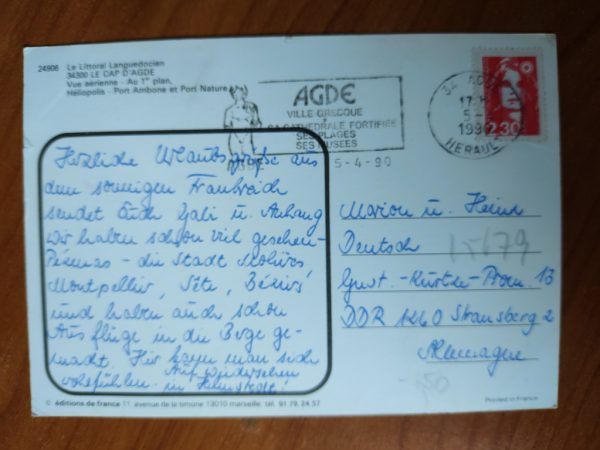 24906 Le Littoral Languedocien
34300 LE CAP D'AGDE
Vue aérienne - Au 1er plan,
Héliopolis - Port Ambone et Port Nature
AGDE
VILLE GRECQUE
SA CATHEDRALE FORTIFIÉE
SES PLAGES
SES MUSEES
5-4-90
34 AGDE
17 H
5-4
1990
HERAULT
2,30
Herzliche Urlaubsgrüße aus
dem sonnigen Frankreich
sendet Euch Gabi u. Anhang
Wir haben schon viel gesehen -
Pézenas - die Stadt Molières
Montpellier, Sète, Béziers
und haben auch schon
Ausflüge in die Berge ge-
macht. Hier kann man sich
wohlfühlen. Auf Wiedersehen
in Helmstedt!
Marion u. Heinz
Deutsch
Gust.-Kurtze-Prom. 13
DDR 1260 Strausberg 2
Allemagne
15679
-,50
© éditions de france 11, avenue de la timone 13010 marseille, tél. 91 79.24.57
Printed in France